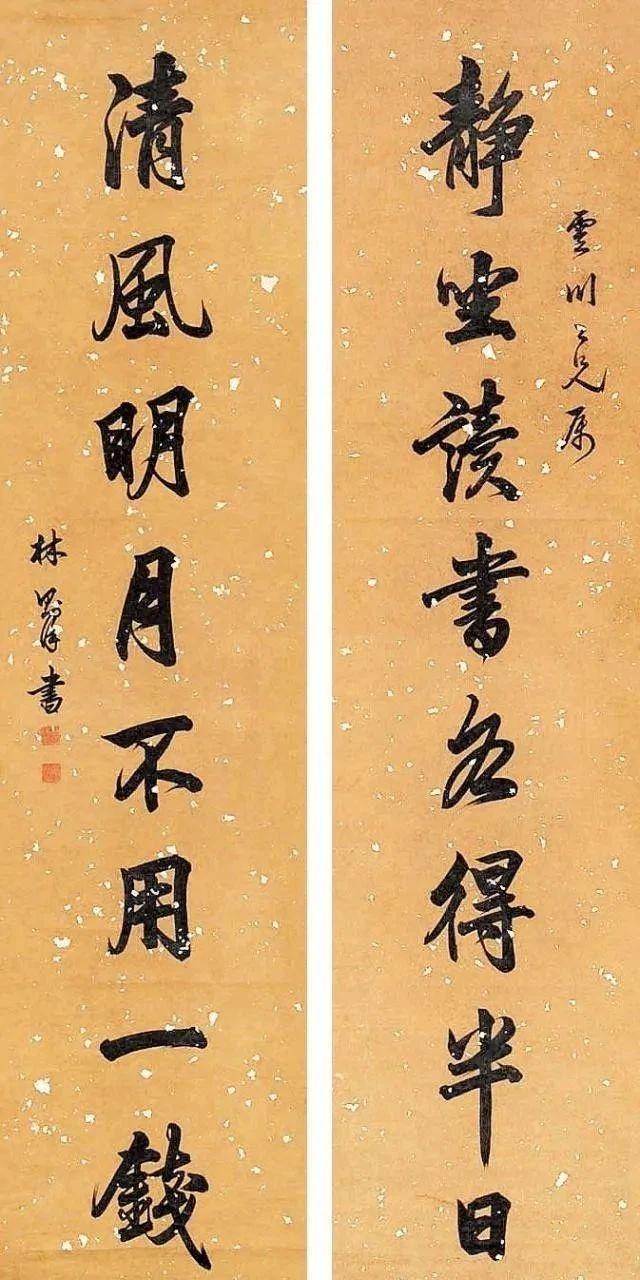 靜坐讀書各得半日
雲川二兄屬
清風明月不用一錢
林則徐書